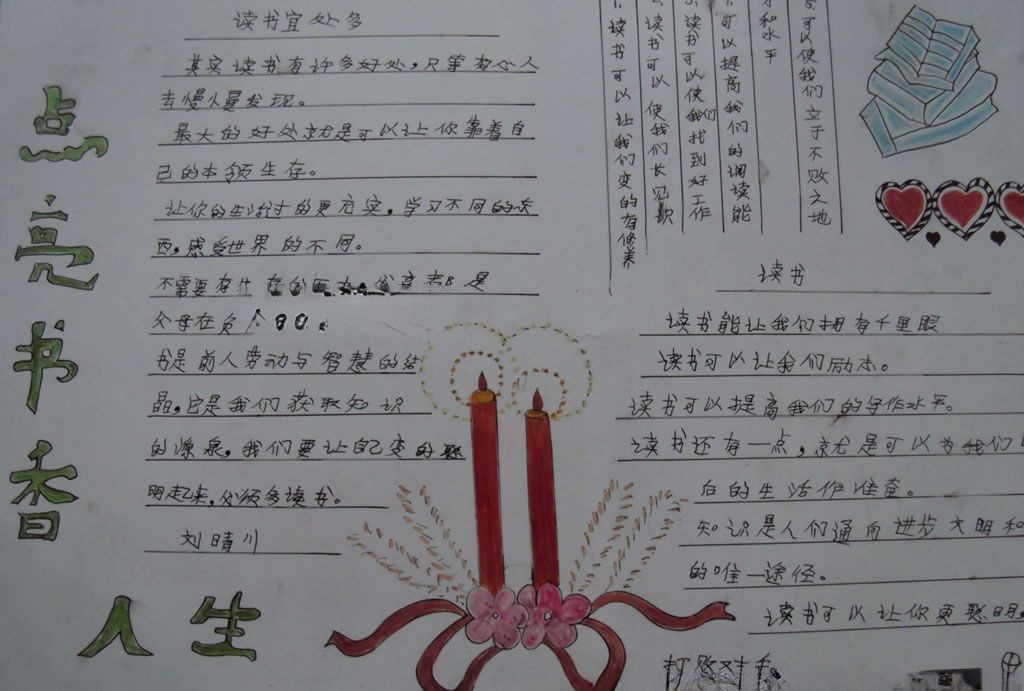 点亮书香
人生
读书宜处多
其实读书有许多好处，只等有心人
去慢慢发现。
最大的好处就是可以让你靠着自
己的本领生存。
让你的生活过的更充实，学习不同的东
西，感受世界的不同。
不需要有什 是
父母在负
书是前人劳动与智慧的结
晶，它是我们获取知识
的源泉，我们要让自己变的聪
明起来，必须多读书。
刘晴川
读书可以让我们变的有修养
读书可以使我们长见识
读书可以使我们找到好工作
可以提高我们的阅读能
力和水平
可以使我们立于不败之地
读书
读书能让我们拥有千里眼
读书可以让我们励志。
读书可以提高我们的写作水平。
读书还有一点，就是可以为我们
后的生活作准备。
知识是人们通向进步文明和
的唯一途径。
读书可以让你更聪明，
打败对手